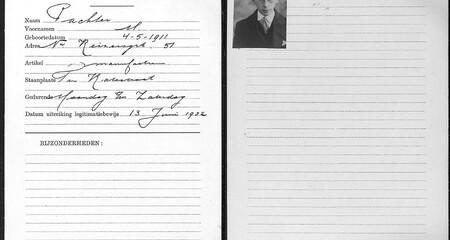 Naam Pachter
Voornamen M
Geboortedatum 4-5-1911
Adres Nw Keizersgrt. 51
Artikel manufacturen
Staanplaats Ten Katestraat
Gedurende Maandag t/m Zaterdag
Datum uitreiking legitimatiebewijs 13 Juni 1932
BIJZONDERHEDEN: